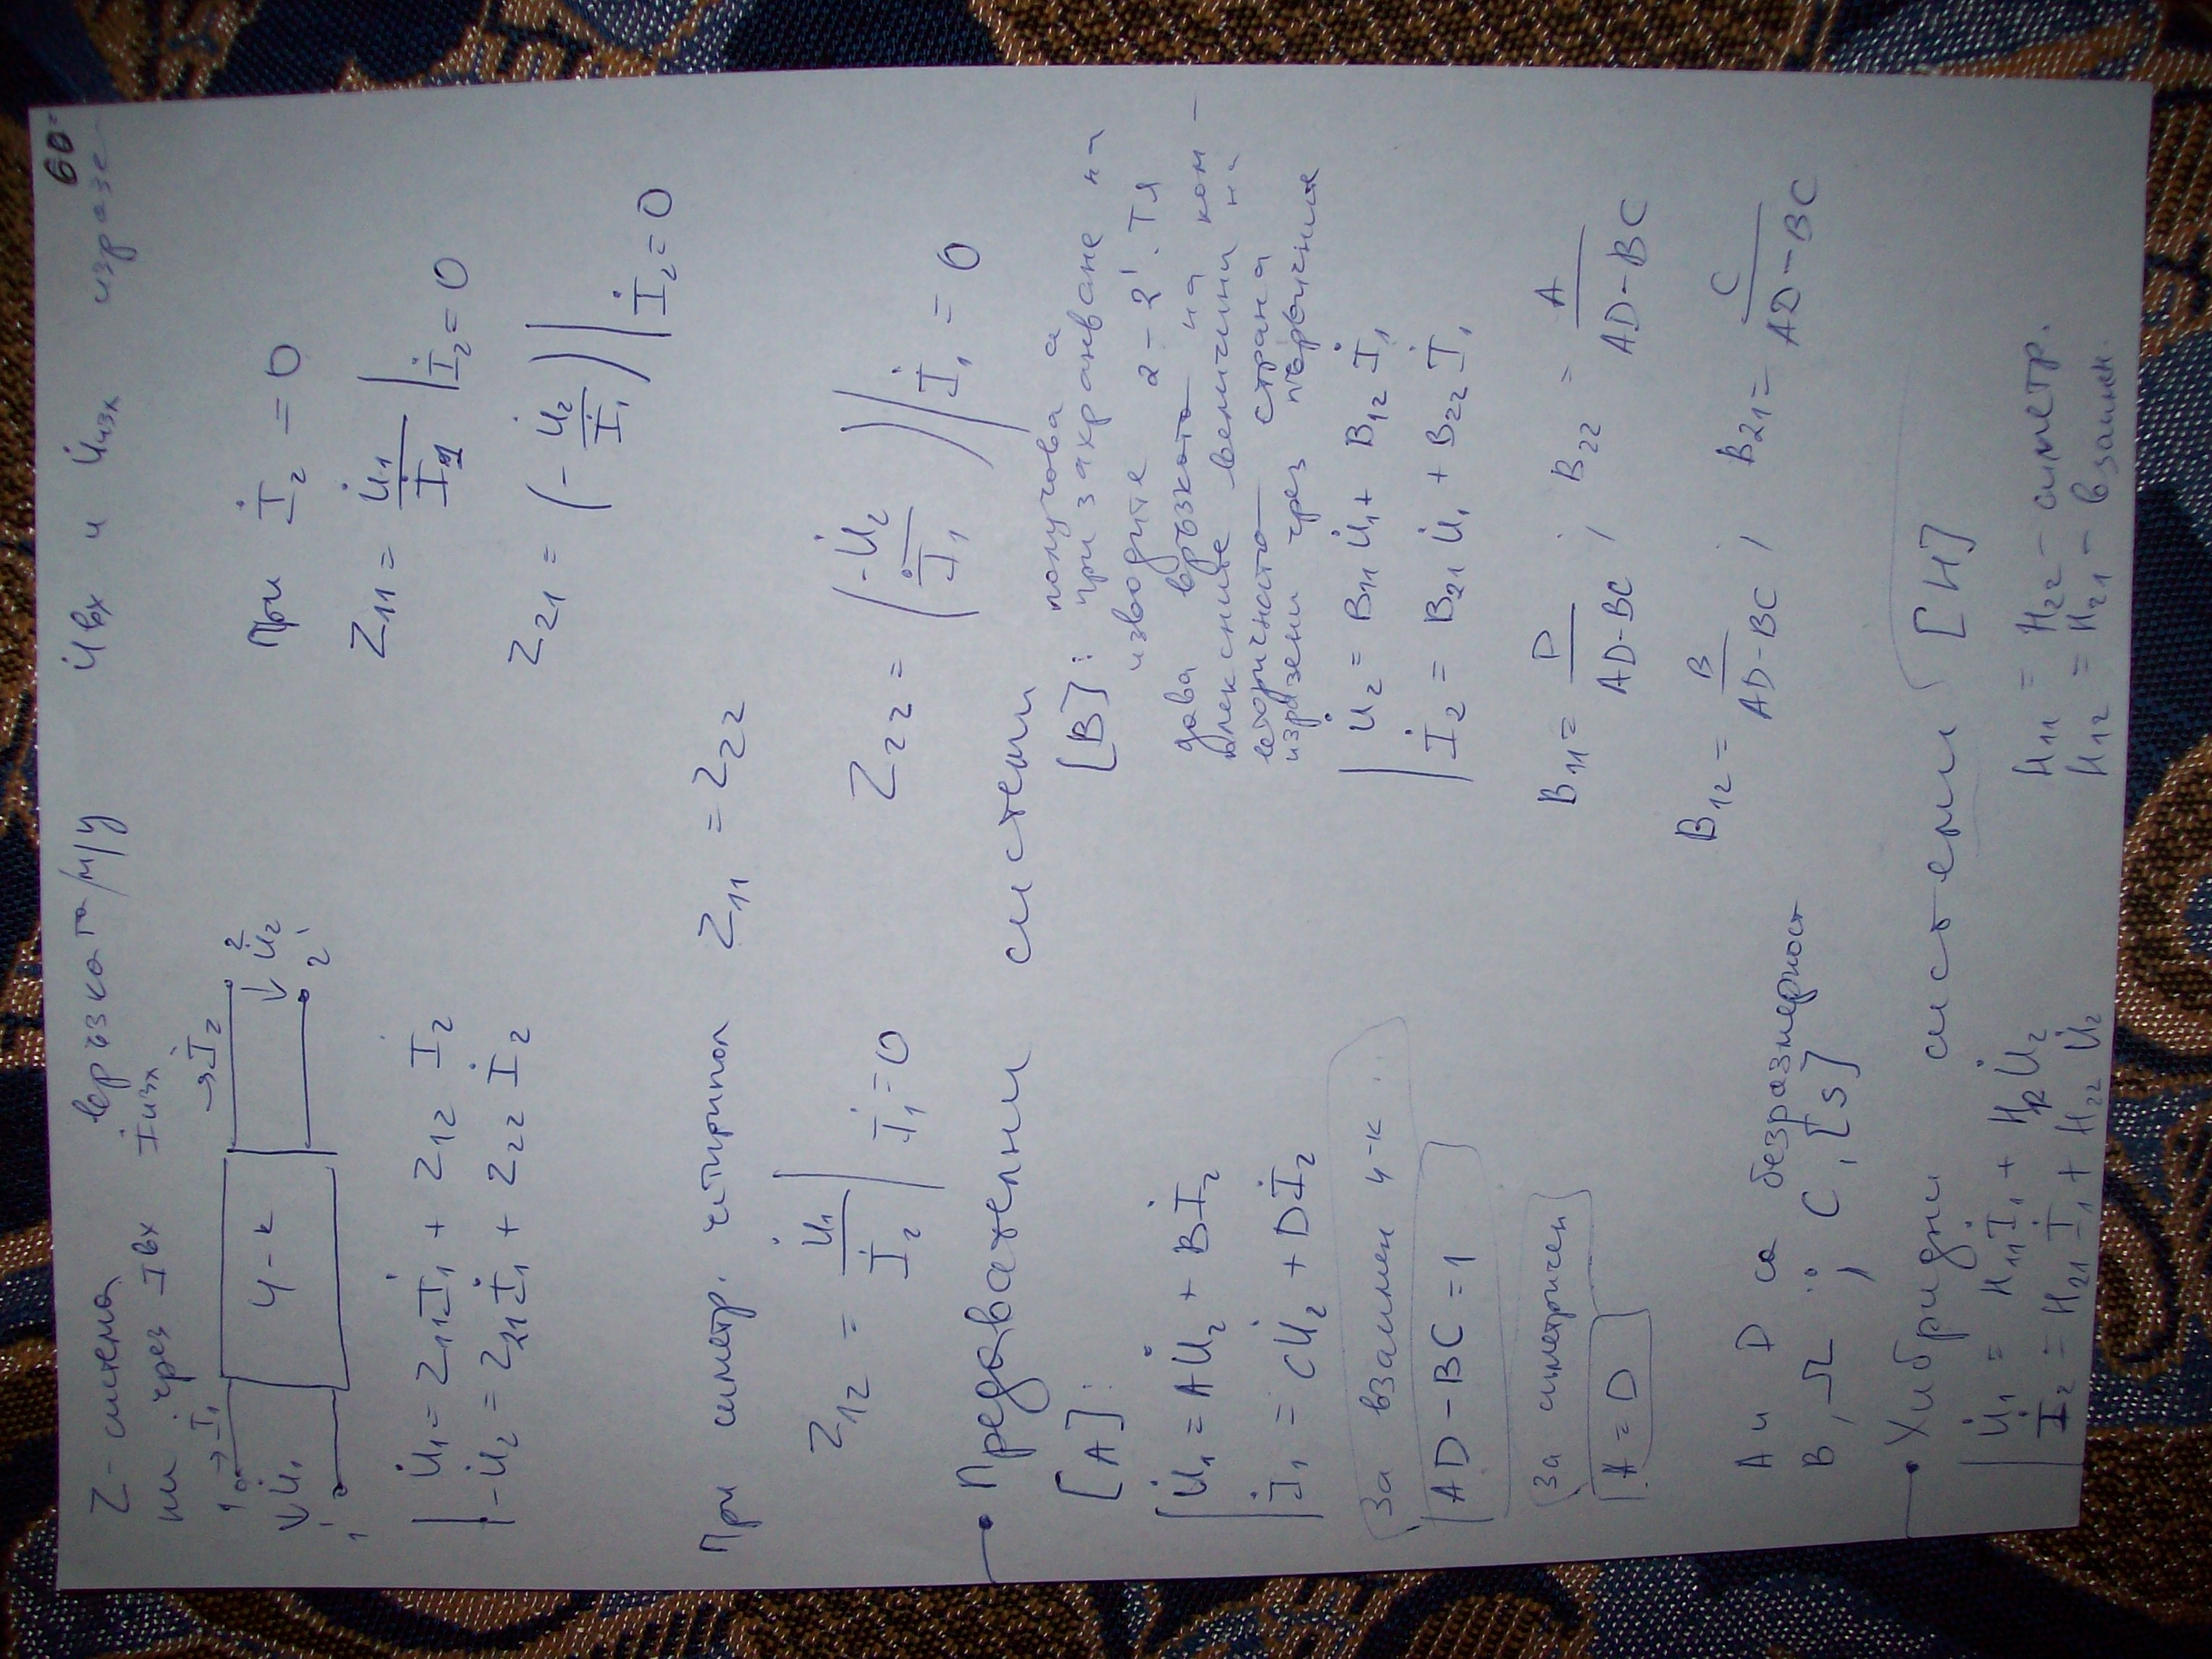 60
Z-система връзката м/у U̇вх и U̇изх изразе-
ни чрез İвх İизх
1 → İ₁ → İ₂ 2
U̇₁ 4-к U̇₂
1' 2'
При İ₂ = 0
U̇₁ = Z₁₁İ₁ + Z₁₂ İ₂
-U̇₂ = Z₂₁İ₁ + Z₂₂ İ₂
Z₁₁ = U̇₁/İ₁ | İ₂ = 0
Z₂₁ = (- U̇₂/İ₁) | İ₂ = 0
При симетр. четирипол Z₁₁ = Z₂₂
Z₁₂ = U̇₁/İ₂ | İ₁ = 0
Z₂₂ = (-U̇₂/İ₁) | İ₁ = 0
• Предавателни системи
[A]:
U̇₁ = AU̇₂ + Bİ₂
İ₁ = CU̇₂ + Dİ₂
За взаимен 4-к
AD - BC = 1
За симетричен
A = D
A и D са безразмерност
B, Ω ; C, [S]
[B]: получава а
при захранване на
изводите 2-2'. Тя
дава връзката на ком-
плексните величини на
вторичната страна
изразени чрез първичния
U̇₂ = B₁₁U̇₁ + B₁₂ İ₁
İ₂ = B₂₁ U̇₁ + B₂₂ İ₁
B₁₁ = D/(AD-BC) ; B₂₂ = A/(AD-BC)
B₁₂ = B/(AD-BC) ; B₂₁ = C/(AD-BC)
• Хибридни системи [H]
U̇₁ = H₁₁İ₁ + H₁₂U̇₂
İ₂ = H₂₁İ₁ + H₂₂U̇₂
H₁₁ = H₂₂ - симетр.
H₁₂ = H₂₁ - взаимн.